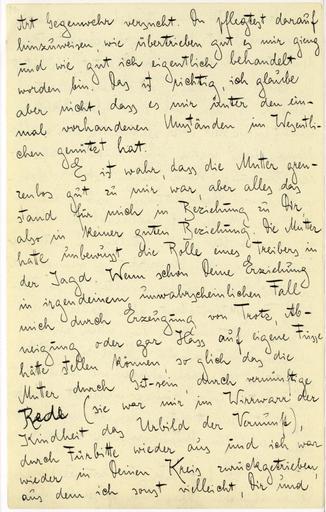 Art Gegenwehr versucht. Du pflegtest darauf
hinzuweisen, wie übertrieben gut es mir gieng
und wie gut ich eigentlich behandelt
worden bin. Das ist richtig, ich glaube
aber nicht, dass es mir unter den ein-
mal vorhandenen Umständen im Wesentli-
chen genützt hat.
Es ist wahr, dass die Mutter gren-
zenlos gut zu mir war, aber alles das
stand für mich in Beziehung zu Dir
also in keiner guten Beziehung. Die Mutter
hatte unbewusst die Rolle eines Treibers in
der Jagd. Wenn schon Deine Erziehung
in irgendeinem unwahrscheinlichen Fall
mich durch Erzeugung von Trotz, Ab-
neigung oder gar Hass auf eigene Füsse
hätte stellen können, so glich das die
Mutter durch Gut-sein, durch vernünftige
Rede (sie war mir im Wirrwarr der
Kindheit das Urbild der Vernunft),
durch Fürbitte wieder aus und ich war
wieder in Deinen Kreis zurückgetrieben,
aus dem ich sonst vielleicht, Dir und